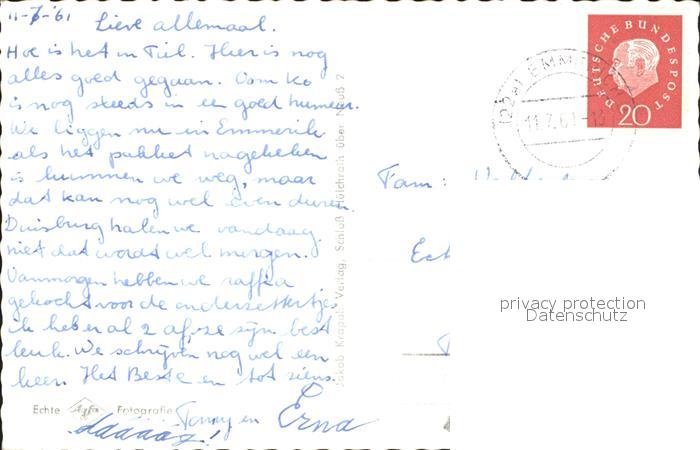 11-7-'61 Lieve allemaal.
Hoe is het in Tiel. Hier is nog
alles goed gegaan. Oom Ko
is nog steeds in een goed humeur.
We liggen nu in Emmerik
als het pakket nagekeken
is kunnen we weg, maar
dat kan nog wel even duren.
Duisburg halen we vandaag
niet dat wordt wel morgen.
Vanmorgen hebben we raffia
gekocht voor de onderzettertjes
ik heb er al 2 af, ze zijn best
leuk. We schrijven nog wel een
keer. Het Beste en tot ziens.
Tonny en Erna
daaaag!
Echte Agfa Fotografie
Jakob Krapohl Verlag, Schloß Hülchrath über Neuß 2
DEUTSCHE BUNDESPOST
20
(22a) EMMERICH
11.7.61
Fam:
privacy protection
Datenschutz